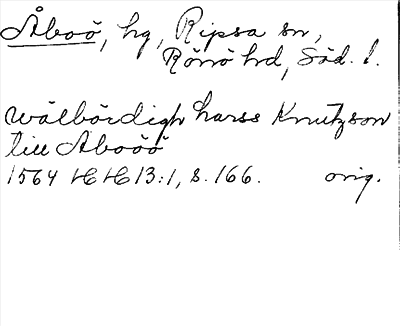 Åboö, hg, Ripsa sn,
Rönö hd, Söd. l.
wälbördigh harss Knutzson
till Åboöö
1564 HH 13:1, s. 166. orig.